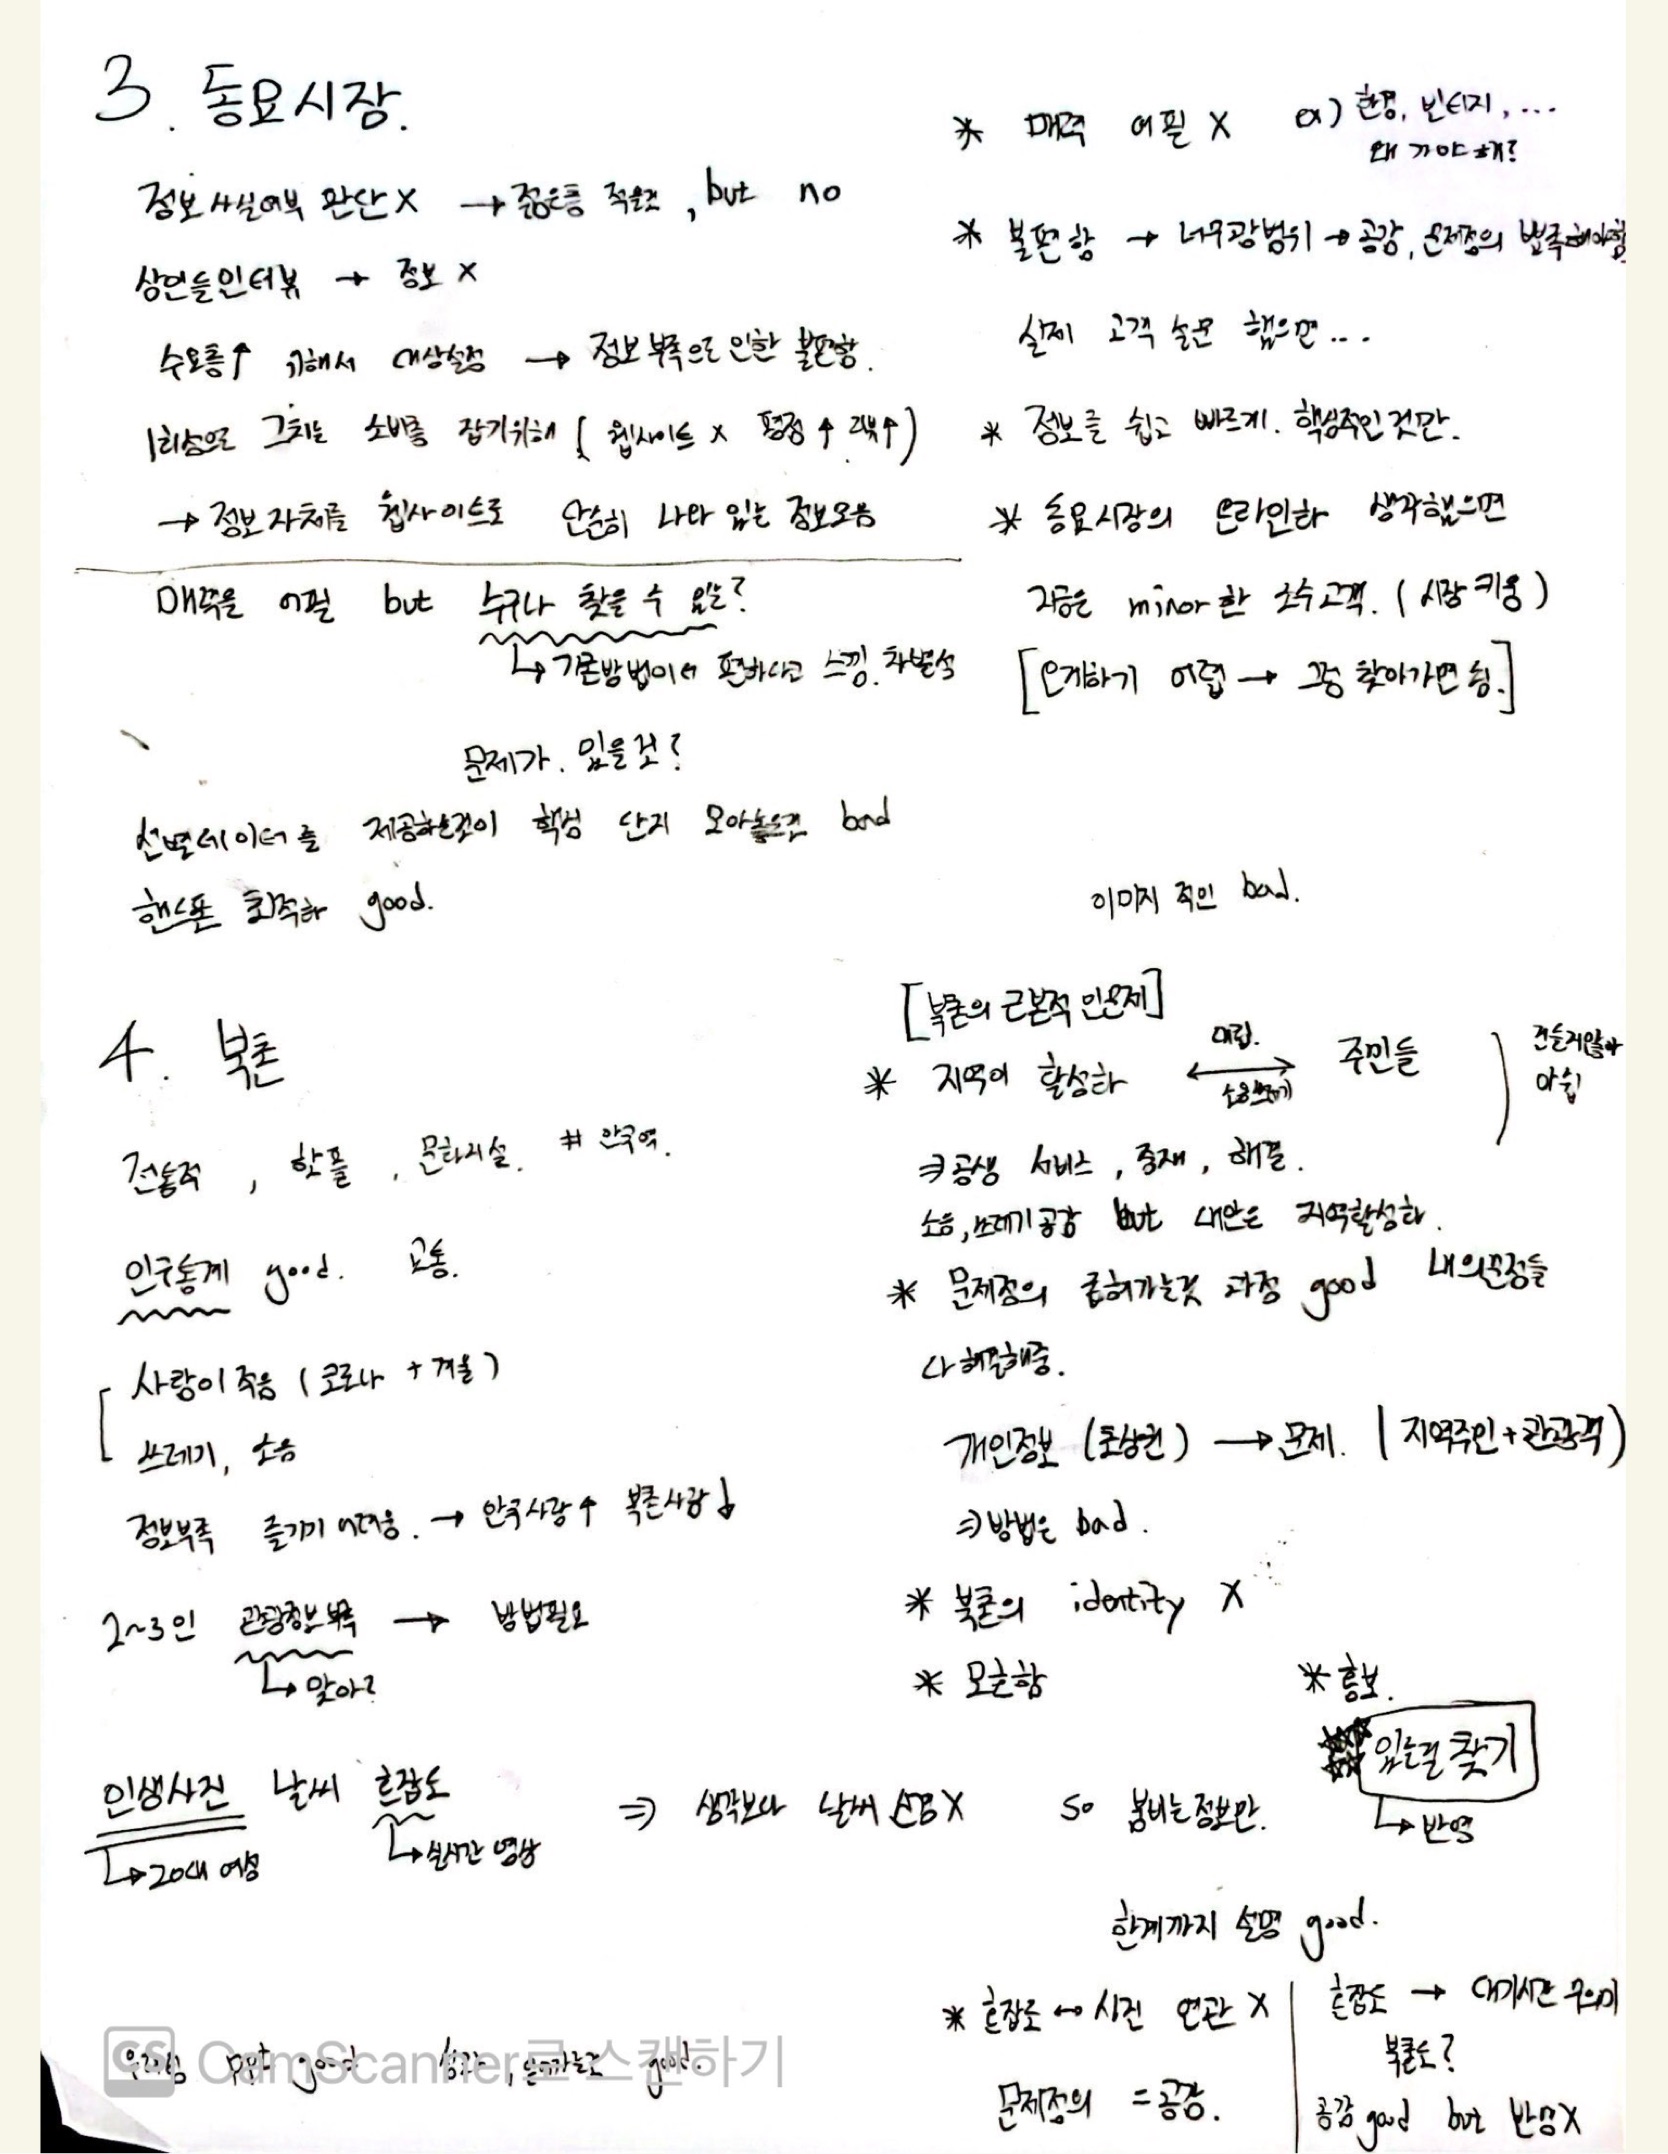 3. 동묘시장.
정보 사실여부 판단 X → 젊은층 적을것, but no
상인들 인터뷰 → 정보 X
수요층↑ 위해서 대상설정 → 정보 부족으로 인한 불편함.
1회성으로 그치는 소비를 잡기위해 ( 웹사이트 X 평점↑ 리뷰↑ )
→ 정보 자체를 웹사이트로 단순히 나와 있는 정보모음
매력을 어필 but 누구나 찾을 수 있는?
↳ 기존방법이 더 편하다고 느낌. 차별성
문제가. 있을것?
선별데이터를 제공하는것이 핵심 단지 모아놓은건 bad
핸드폰 최적화 good.
* 매력 어필 X ex) 환경, 빈티지, ...
왜 가야해?
* 불편함 → 너무 광범위 → 공감, 문제점의 뾰족해야함
실제 고객 설문 했으면...
* 정보를 쉽고 빠르게. 핵심적인 것만.
* 동묘시장의 온라인화 생각했으면
지금은 minor한 소수고객. ( 시장 키움 )
[ 어렵 → 그냥 찾아가면 됨. ]
이미지 적인 bad.
4. 북촌
전통적, 핫플, 문화시설. # 안국역.
인구통계 good. 교통.
사람이 적음 ( 코로나 + 겨울 )
쓰레기, 소음
정보부족 즐기기 어려움. → 안국사람↑ 북촌사람↓
2~3인 관광정보 부족 → 방법필요
↳ 맞아?
인생사진 날씨 혼잡도 ⇒ 생각보다 날씨 설명 X so 붐비는 정보만.
↳ 20대 여성 ↳ 실시간 영상
[ 북촌의 근본적인 문제 ]
* 지역의 활성화 ↔ 주민들
대립.
소음쓰레기
건들지않아
아쉽
⇒ 공생 서비스, 중재, 해결.
소음, 쓰레기 공감 but 대안은 지역활성화.
* 문제점의 좁혀가는것 과정 good 내 의문점들
다 해결해줌.
개인정보 ( 초상권 ) → 문제. ( 지역주민 + 관광객 )
⇒ 방법은 bad.
* 북촌의 identity X
* 모호함 * 홍보.
있는길 찾기
↳ 반영
한계까지 설명 good.
* 혼잡도 ↔ 사진 연관 X
문제점의 = 공감.
혼잡도 → 대기시간 무의미
북촌도?
공감 good but 반영 X
CS CamScanner로 스캔하기
good good.